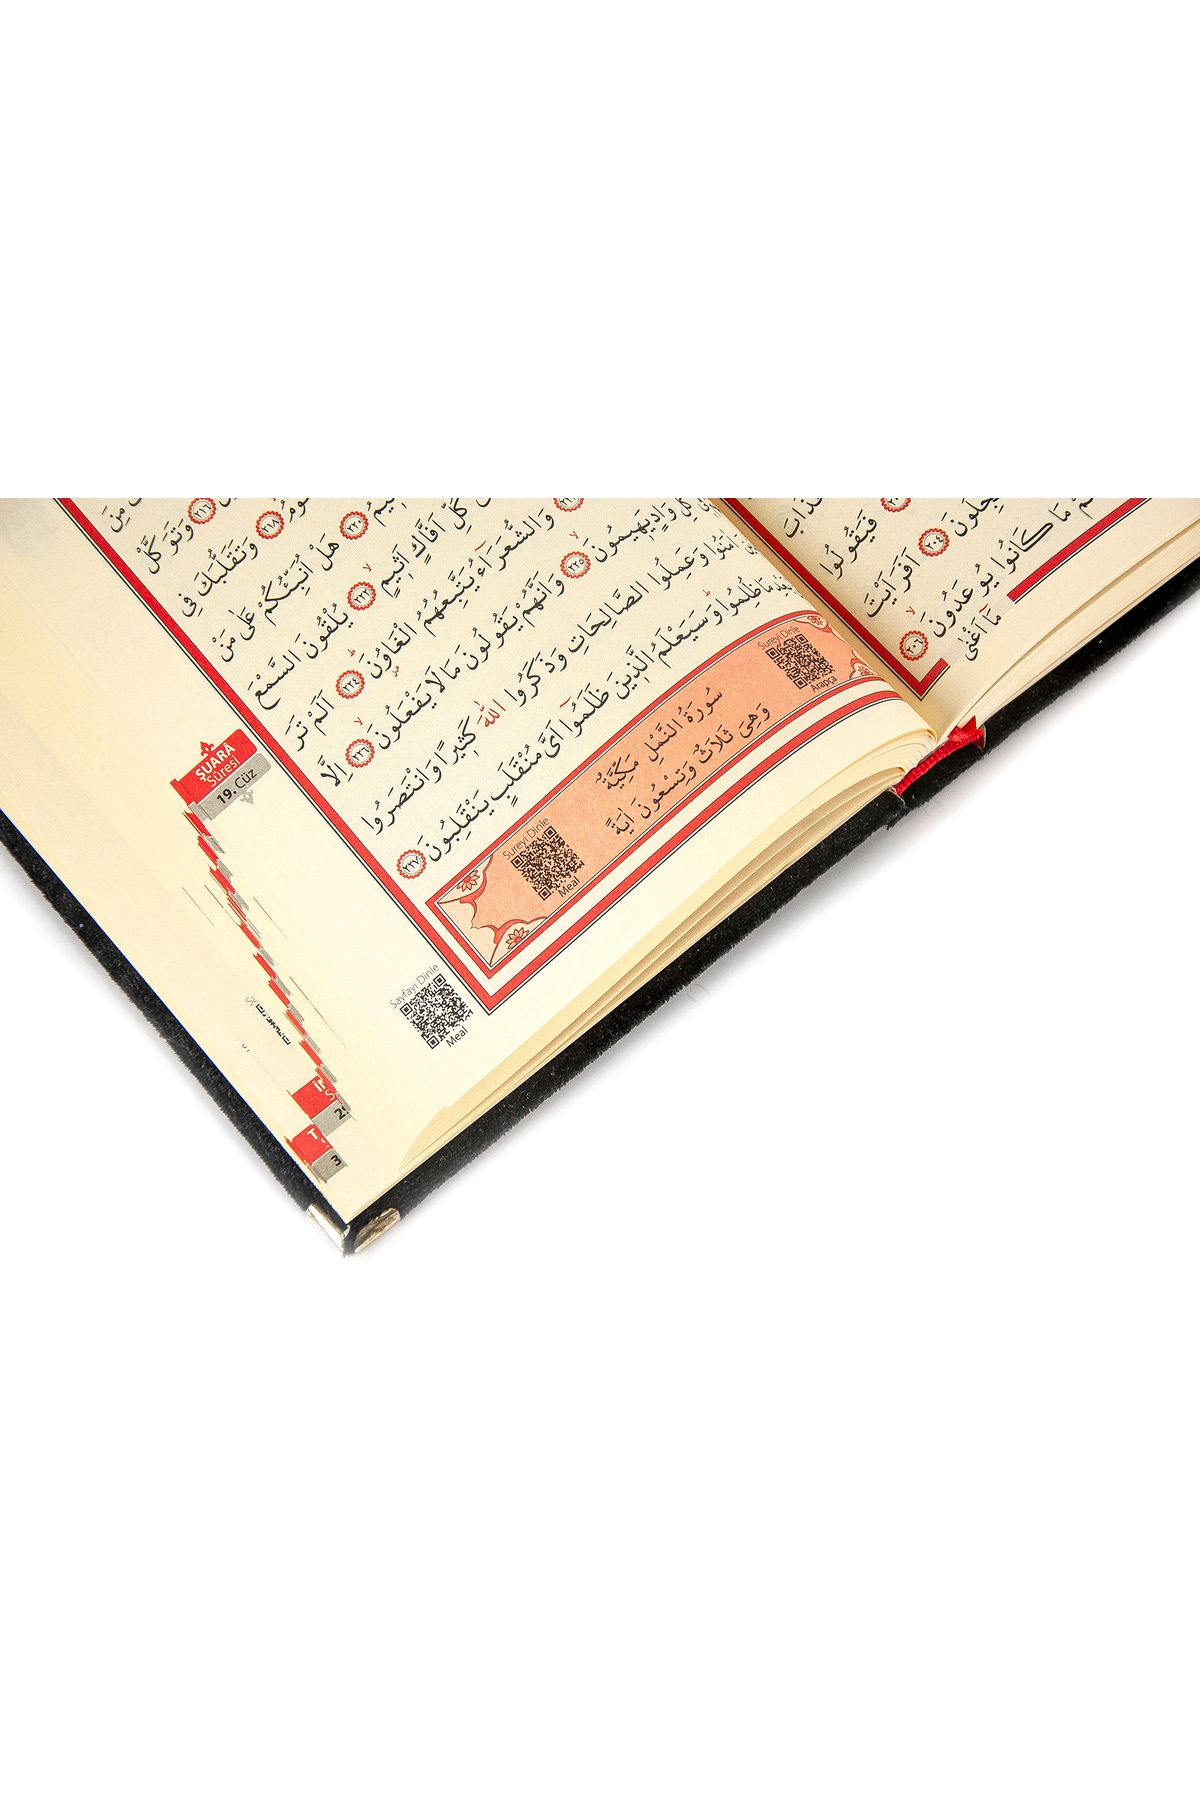 وَتَوَكَّلْ
وَتَقَلُّبَكَ فِى
هَلْ اُنَبِّئُكُمْ عَلٰى مَنْ
كُلِّ اَفَّاكٍ اَثِيمٍ ﴿٢٢٢﴾ يُلْقُونَ السَّمْعَ
وَالشُّعَرَٓاءُ يَتَّبِعُهُمُ الْغَاوُ۫نَ ﴿٢٢٤﴾ اَلَمْ تَرَ
وَادٍ يَهِيمُونَ ﴿٢٢٥﴾ وَاَنَّهُمْ يَقُولُونَ مَا لَا يَفْعَلُونَ ﴿٢٢٦﴾ اِلَّا
اٰمَنُوا وَعَمِلُوا الصَّالِحَاتِ وَذَكَرُوا اللّٰهَ كَثِيرًا وَانْتَصَرُوا
مَا ظُلِمُوا وَسَيَعْلَمُ الَّذِينَ ظَلَمُٓوا اَىَّ مُنْقَلَبٍ يَنْقَلِبُونَ ﴿٢٢٧﴾
Sureyi Dinle
Arapça
سُورَةُ النَّمْلِ مَكِّيَّةٌ
وَهِىَ ثَلَاثٌ وَتِسْعُونَ اٰيَةً
Sureyi Dinle
Meal
Sayfayı Dinle
Meal
ŞUARÂ
Sûresi
19. Cüz
فَيَقُولُوا
اَفَرَاَيْتَ
مَا كَانُوا يُوعَدُونَ ﴿٢٠٦﴾
مَٓا اَغْنٰى